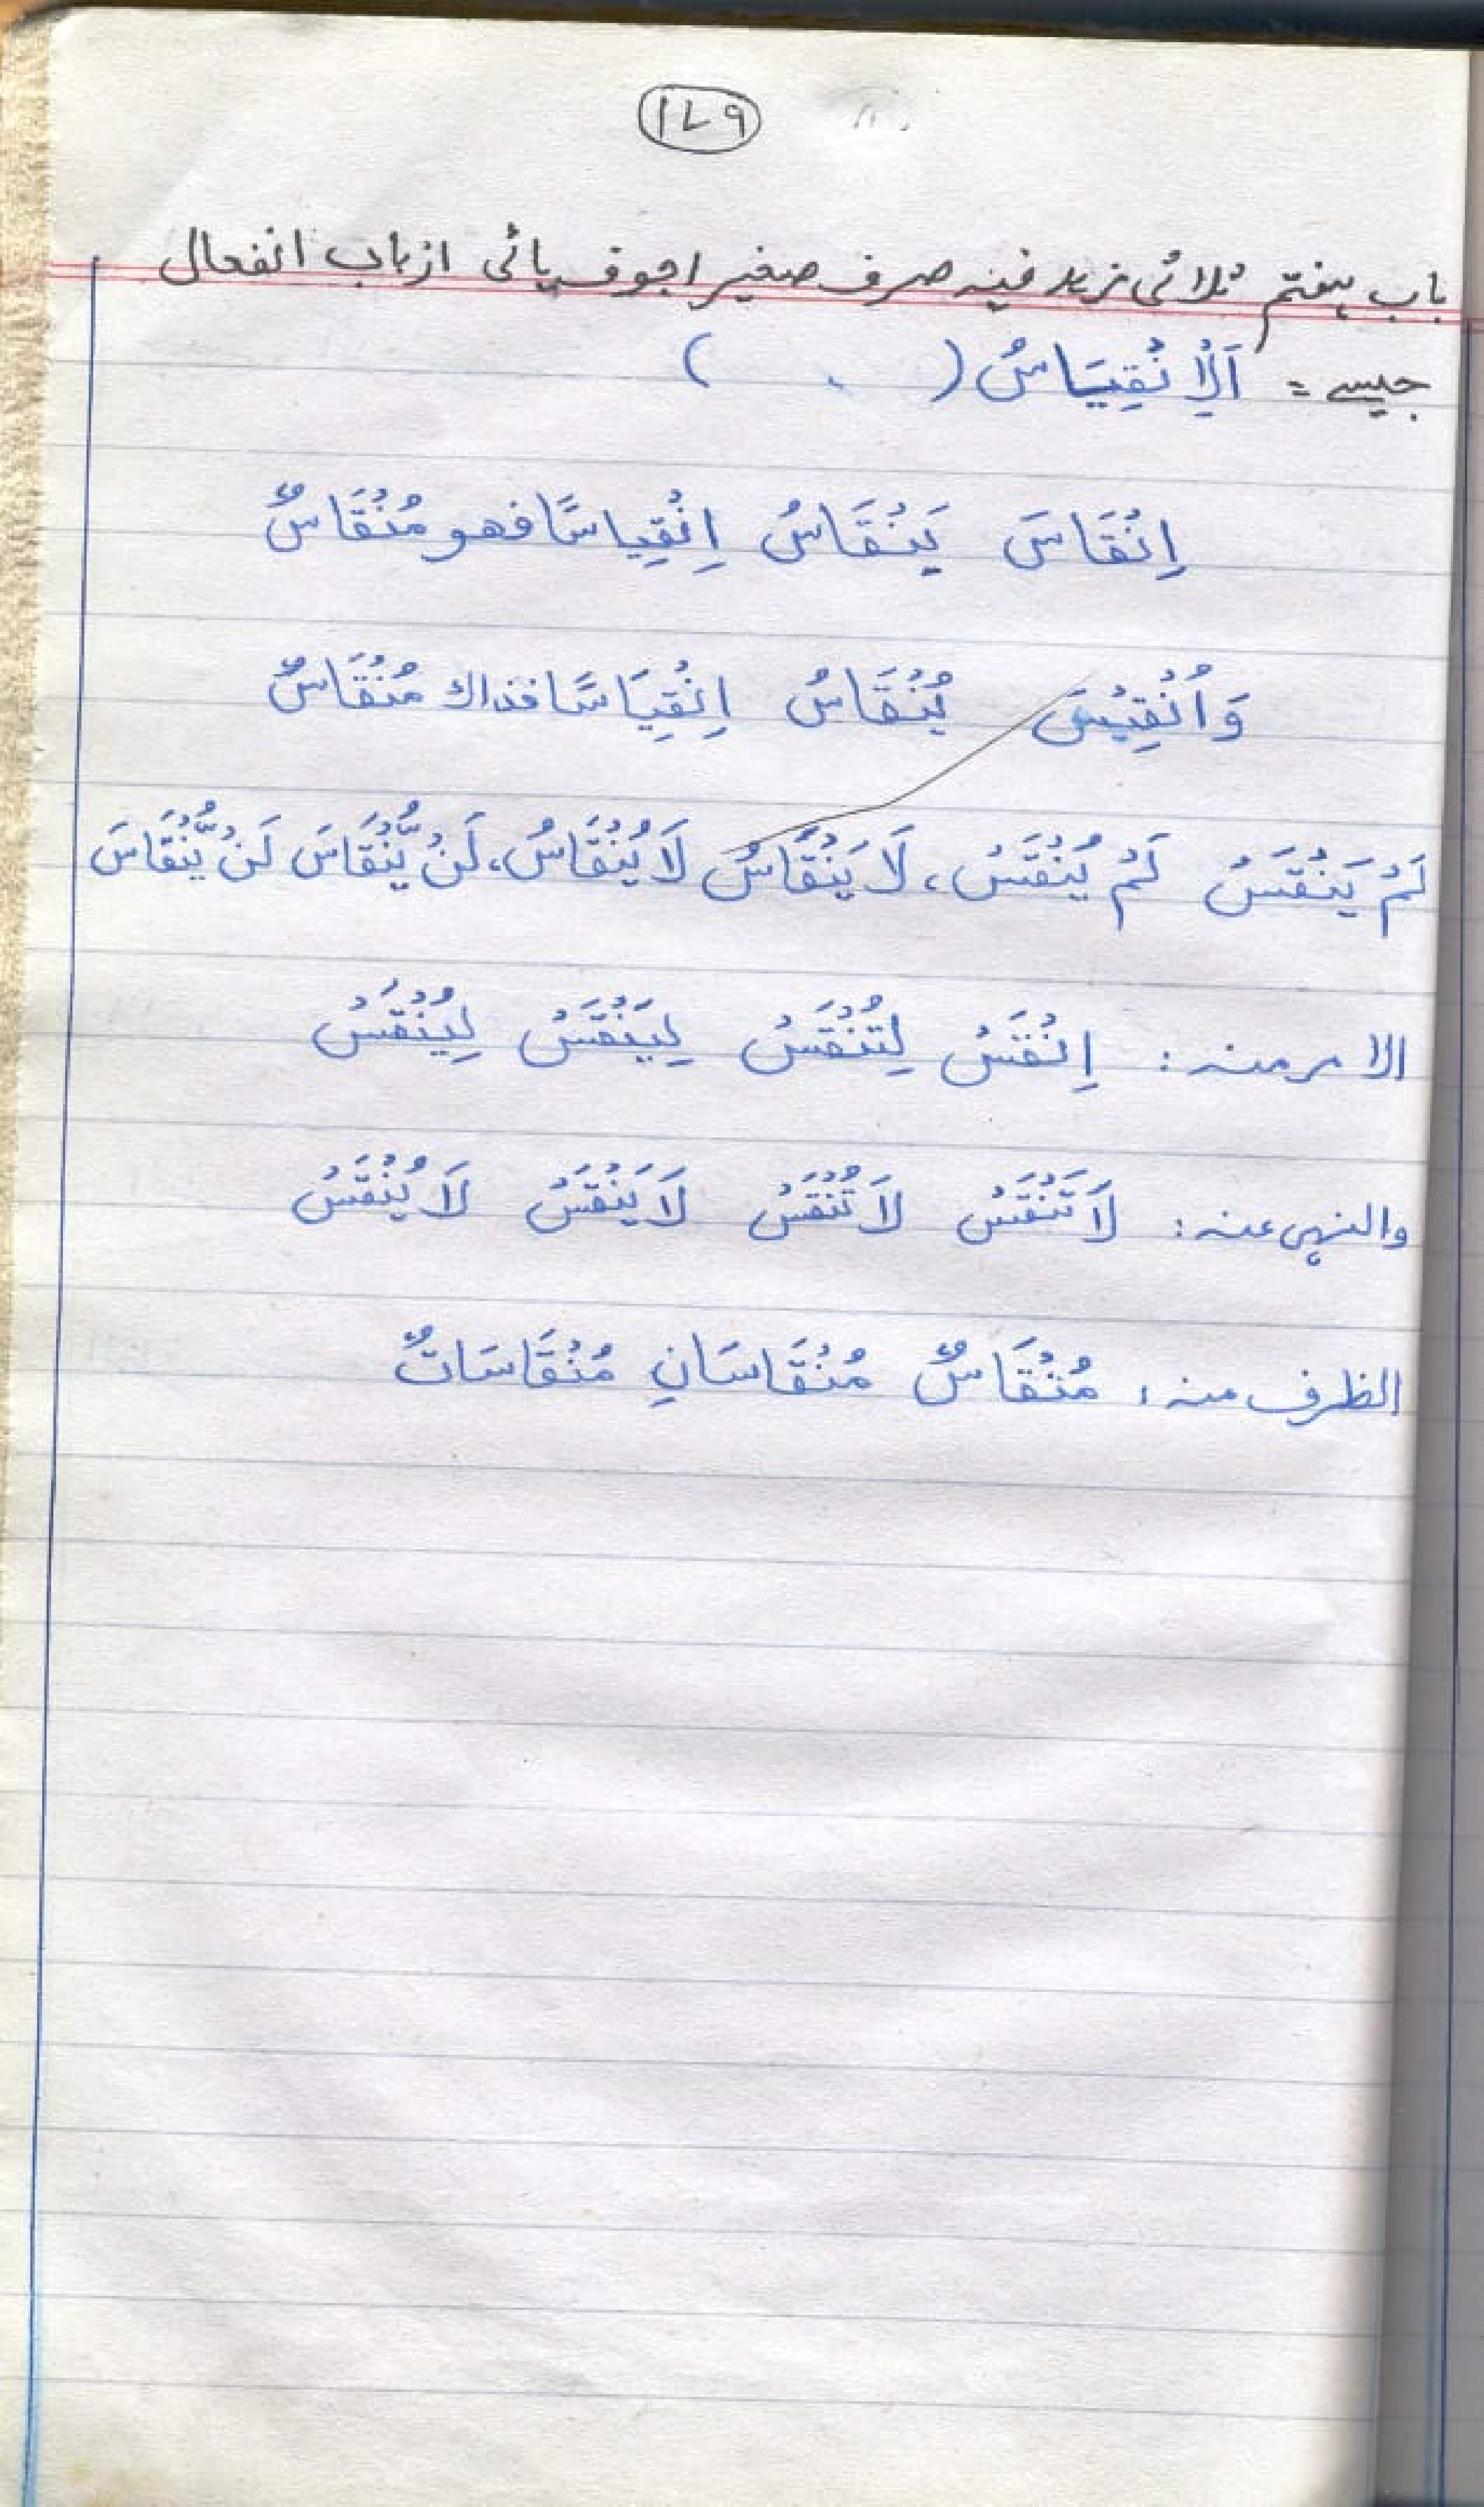 ۱۷۹
باب ہفتم ثلاثی مزید فیہ صرف صغیر اجوف یائی از باب انفعال
جیسے = اَلْاِنْقِیَاسُ ( )
اِنْقَاسَ یَنْقَاسُ اِنْقِیاسًا فھو مُنْقَاسٌ
وَاُنْقِیْسَ یُنْقَاسُ اِنْقِیَاسًا فذاك مُنْقَاسٌ
لَمْ یَنْقَسْ لَمْ یُنْقَسْ، لَا یَنْقَاسُ لَا یُنْقَاسُ، لَنْ یَّنْقَاسَ لَنْ یُّنْقَاسَ
الامر منہ : اِنْقَسْ لِتُنْقَسْ لِیَنْقَسْ لِیُنْقَسْ
والنہی عنہ : لَاتَنْقَسْ لَاتُنْقَسْ لَایَنْقَسْ لَایُنْقَسْ
الظرف منہ : مُنْقَاسٌ مُنْقَاسَانِ مُنْقَاسَاتٌ